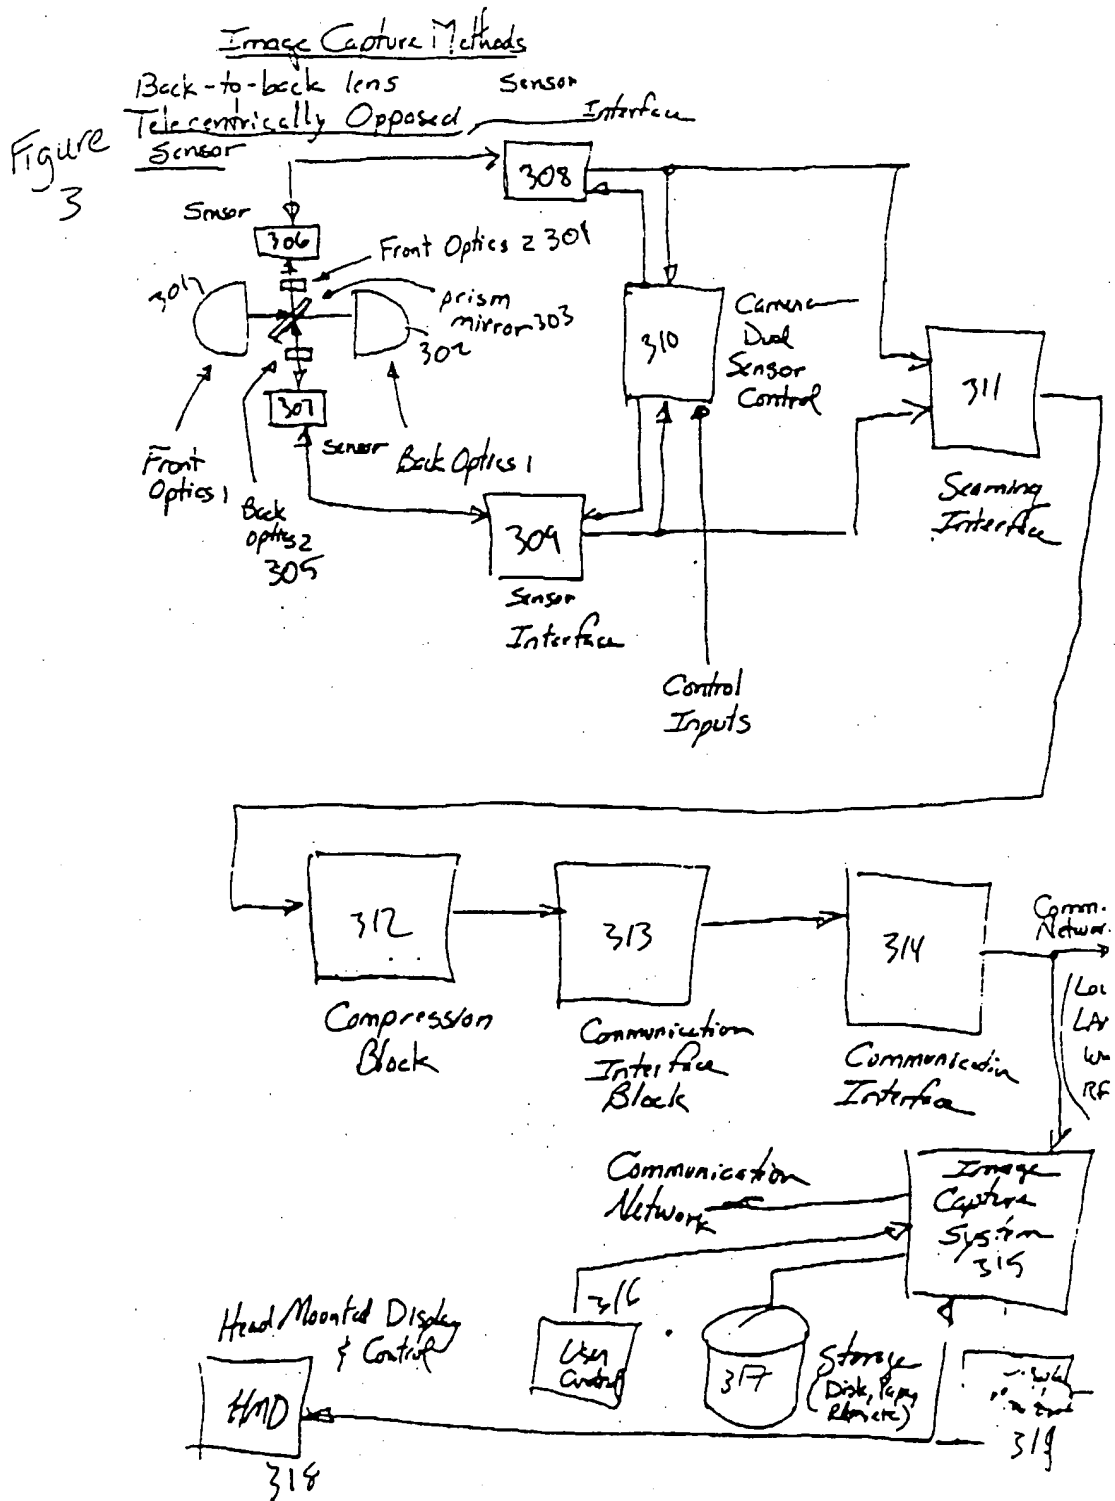 Image Capture Methods
Back-to-back lens
Telecentrically Opposed
Sensor
Sensor
Interface
Figure
3
308
Sensor
306
Front Optics 2 304
301
prism
mirror 303
302
307
Sensor
Front
Optics 1
Back
Optics 2
305
Back Optics 1
310
Camera
Dual
Sensor
Control
311
Seaming
Interface
309
Sensor
Interface
Control
Inputs
312
Compression
Block
313
Communication
Interface
Block
314
Communication
Interface
Comm.
Networ
RF
Communication
Network
Image
Capture
System
315
316
User
Control
317
Storage
Head Mounted Display
& Control
HMD
318
319